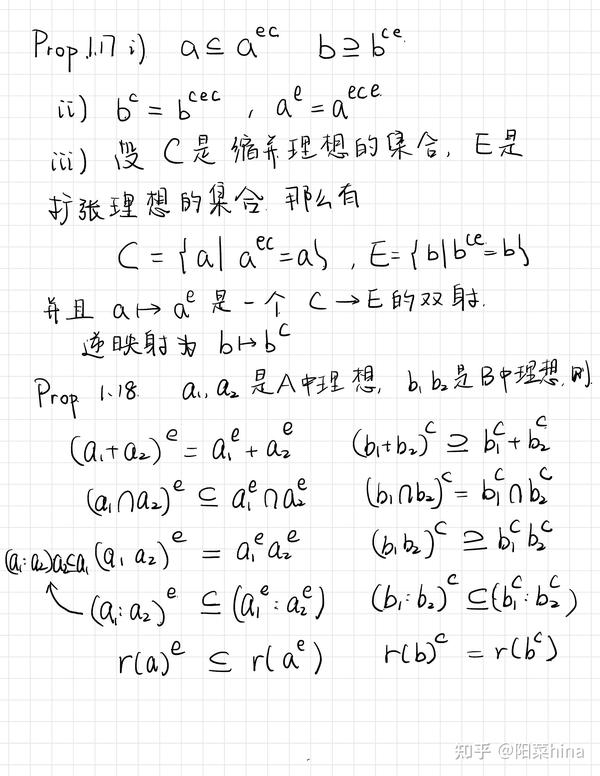 Prop.1.17 i) a ⊆ a^{ec} b ⊇ b^{ce}.
ii) b^c = b^{cec} , a^e = a^{ece}.
iii) 设 C是缩并理想的集合, E是
扩张理想的集合. 那么有
C = {a| a^{ec}=a} , E={b|b^{ce}=b}
并且 a ↦ a^e 是一个 C → E 的双射.
逆映射为 b ↦ b^c
Prop 1.18. a₁, a₂ 是A中理想, b₁ b₂是B中理想, 则.
(a₁+a₂)^e = a₁^e + a₂^e (b₁+b₂)^c ⊇ b₁^c + b₂^c
(a₁∩a₂)^e ⊆ a₁^e ∩ a₂^e (b₁∩b₂)^c = b₁^c ∩ b₂^c
(a₁:a₂)a₂⊆a₁ (a₁ a₂)^e = a₁^e a₂^e (b₁b₂)^c ⊇ b₁^c b₂^c
(a₁:a₂)^e ⊆ (a₁^e : a₂^e) (b₁:b₂)^c ⊆ (b₁^c : b₂^c)
r(a)^e ⊆ r(a^e) r(b)^c = r(b^c)
知乎 @阳菜hina